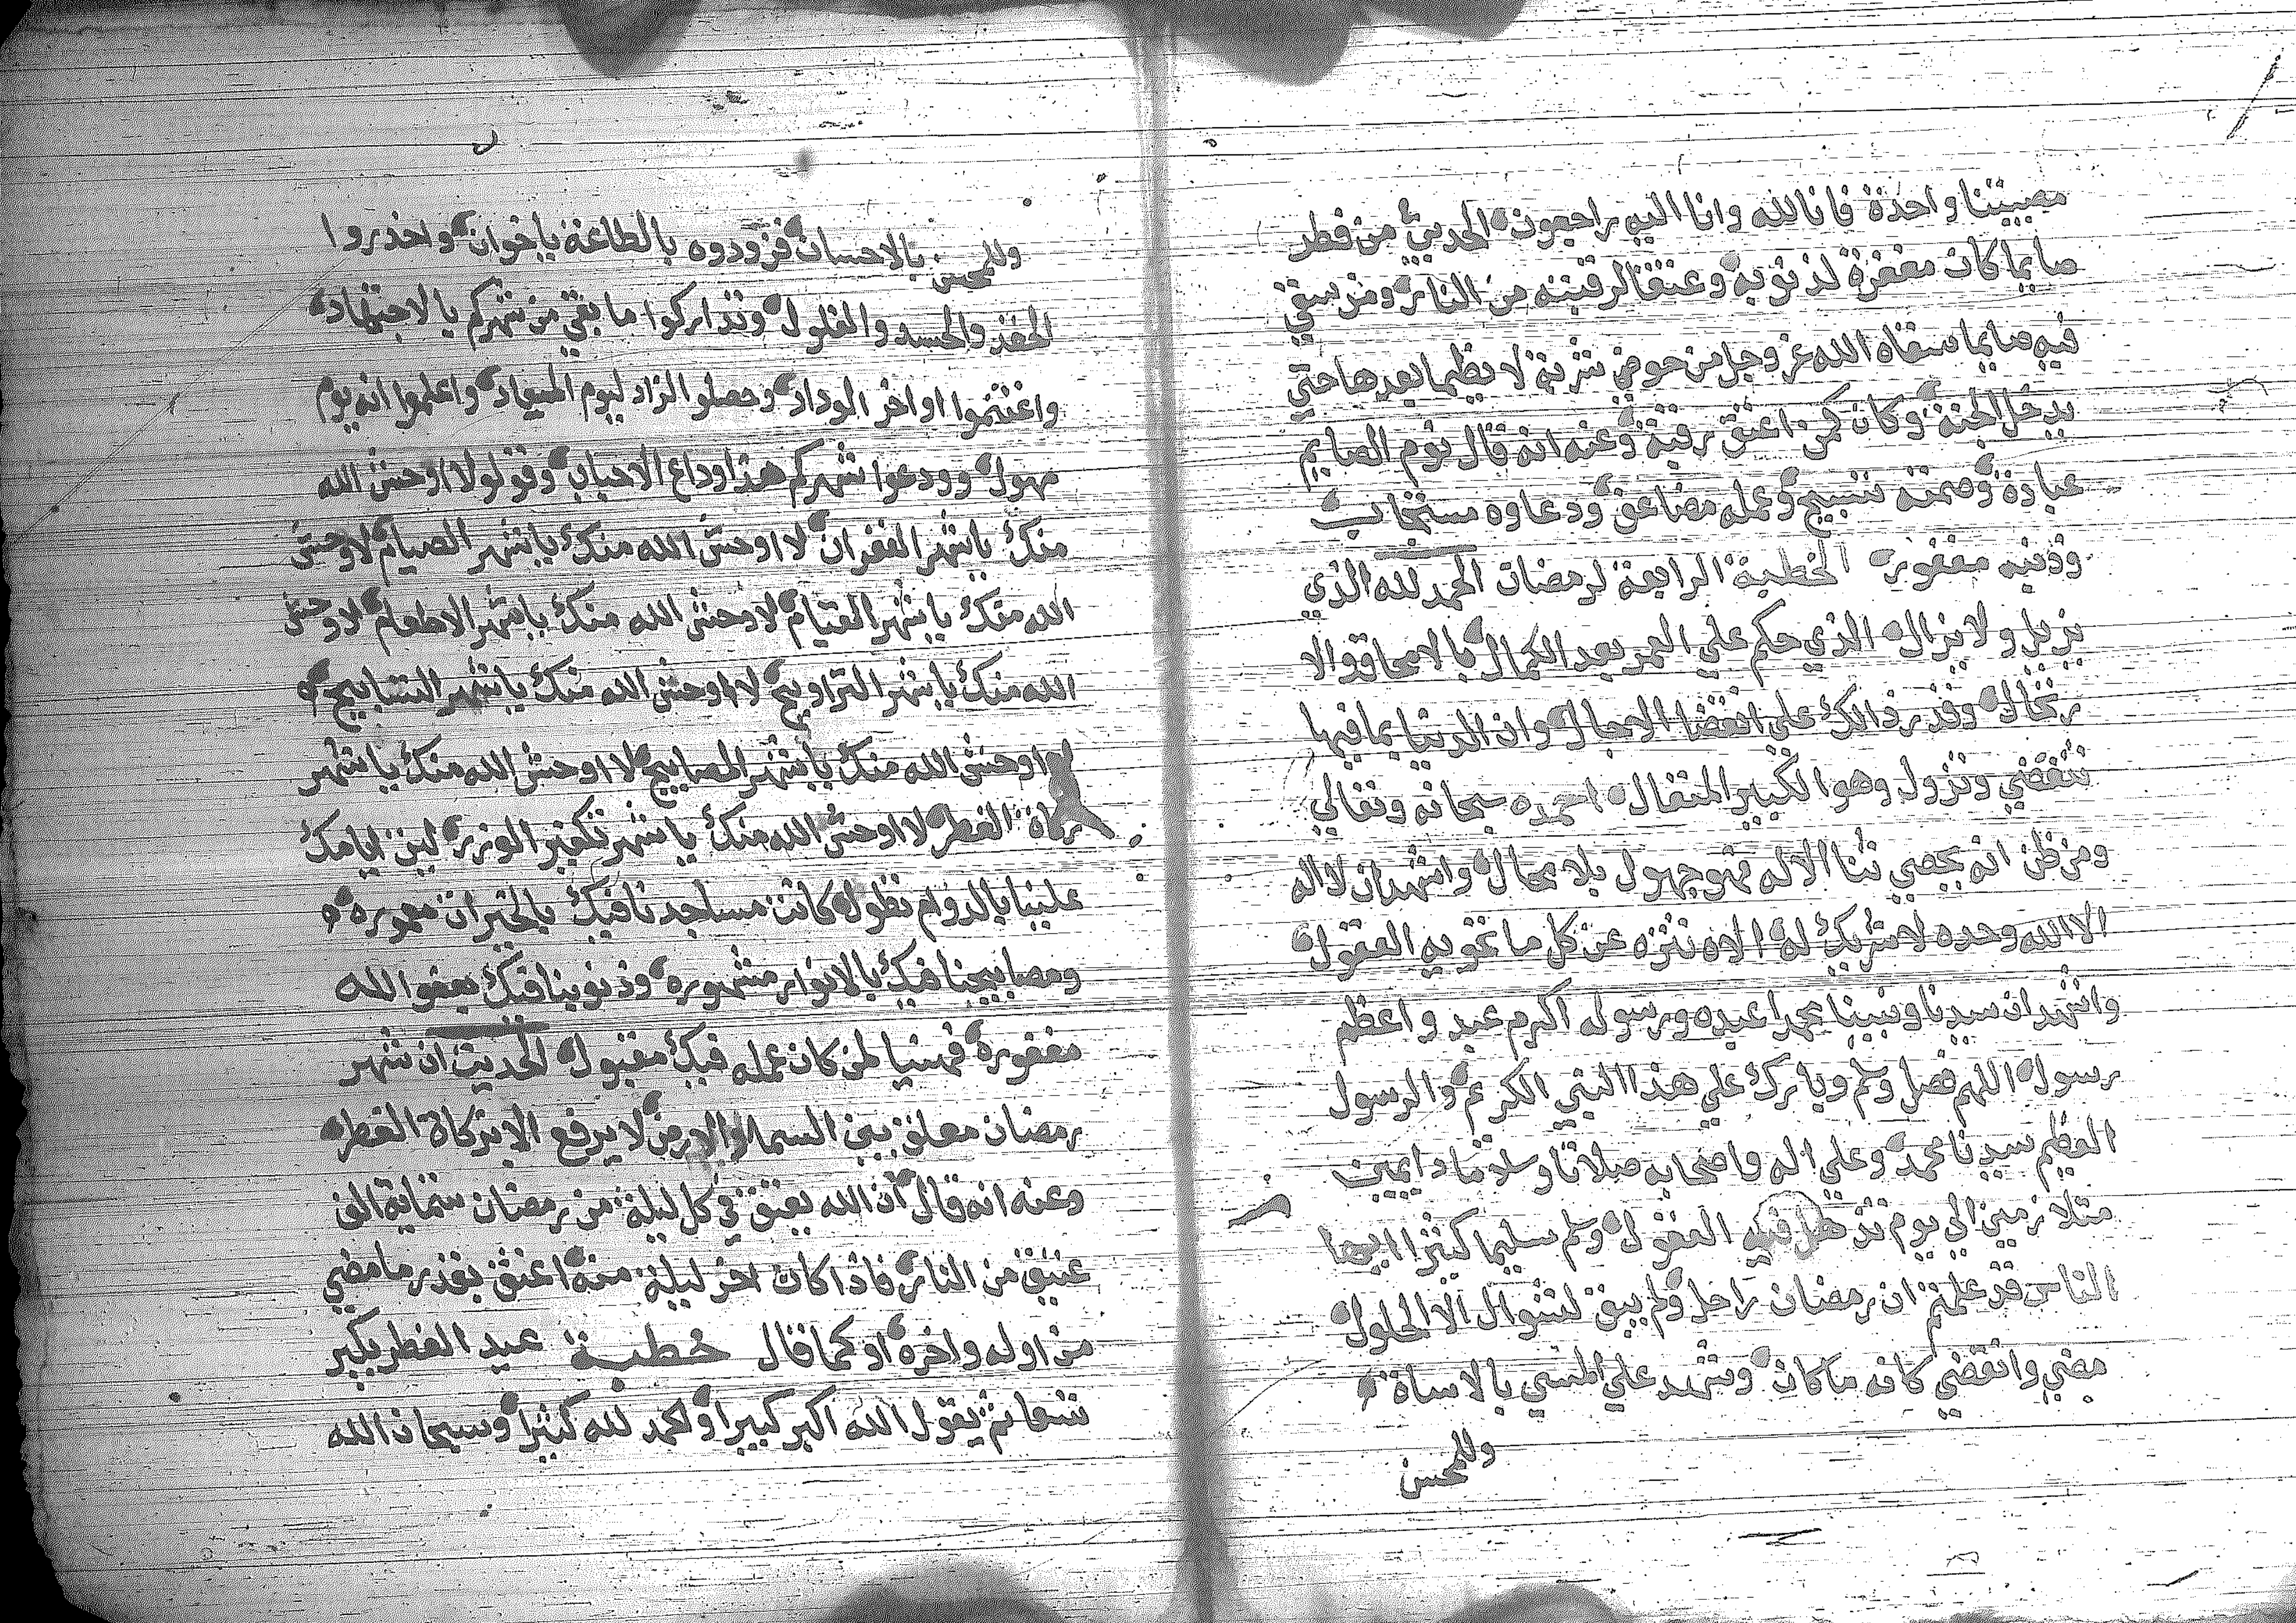 مصيبتنا واحدة فانا لله وانا اليه راجعون الحديث من فطر
صايما كان مغفرة لذنوبه وعتقا لرقبته من النار ومن سقي
فيه صايما سقاه الله عز وجل من حوضي شربة لا يظما بعدها حتي
يدخل الجنة وكان كمن اعتق رقبة وعنه انه قال نوم الصايم
عبادة وصمته تسبيح وعمله مضاعف ودعاوه مستجاب
وذنبه مغفور الخطبة الرابعة لرمضان الحمد لله الذي
يزيل ولا يزال الذي حكم علي العمر بعد الكمال بالامحاق والا
رتحال وقدر ذالك علي انقضا الاجال وان الدنيا بما فيها
تنقضي وتزول وهو الكبير المتعال احمده سبحانه وتعالي
ومن ظن انه يحصي ثنا الاله فهو جهول بلا محال واشهد ان لا اله
الا الله وحده لا شريك له الاه تنزه عن كل ما تحويه العقول
واشهد ان سيدنا ونبينا محمدا عبده ورسوله اكرم عبد واعظم
رسول اللهم فصل وسلم وبارك علي هذا النبي الكريم والرسول
العظيم سيدنا محمد وعلي اله واصحابه صلاتا وسلاما دايمين
متلازمين الي يوم تذهل فيه العقول وسلم تسليما كثيرا ايها
الناس قد علمتم ان رمضان راحل ولم يبق لشوال الا الحلول
مضي وانقضي كانه ما كان وشهد علي المسي بالاساة
وللمحسن
وللمحسن بالاحسان فزودوه بالطاعة ياخوان واحذروا
الحقد والحسد والغلول وتداركوا ما بقي من شهركم بالاجتهاد
واغتنموا اواخر الوداد وحصلو الزاد ليوم الميعاد واعلموا انه يوم
مهول وودعوا شهركم هذا وداع الاحباب وقولو لا اوحش الله
منك يا شهر الغفران لا اوحش الله منك يا شهر الصيام لا اوحش
الله منك يا شهر القيام لا اوحش الله منك يا شهر الاطعام لا اوحش
الله منك يا شهر التراويح لا اوحش الله منك يا شهر التسابيح
لا اوحش الله منك يا شهر المصابيح لا اوحش الله منك يا شهر
زكاة الفطر لا اوحش الله منك يا شهر تكفير الوزر ليت ايامك
علينا بالدوام تطول كانت مساجدنا فيك بالخيرات معموره
ومصابيحنا فيك بالانوار مشهوره وذنوبنا فيك بعفو الله
مغفوره فهنيا لمن كان عمله فيك مقبول الحديث ان شهر
رمضان معلق بين السما والارض لا يرفع الا بزكاة الفطر
وعنه انه قال ان الله يعتق في كل ليلة من رمضان ستماية الف
عتيق من النار فاذا كان اخر ليلة منه اعتق بقدر ما مضي
من اوله واخره او كما قال خطبة عيد الفطر يكبر
تسعا ثم يقول الله اكبر كبيرا والحمد لله كثيرا وسبحان الله